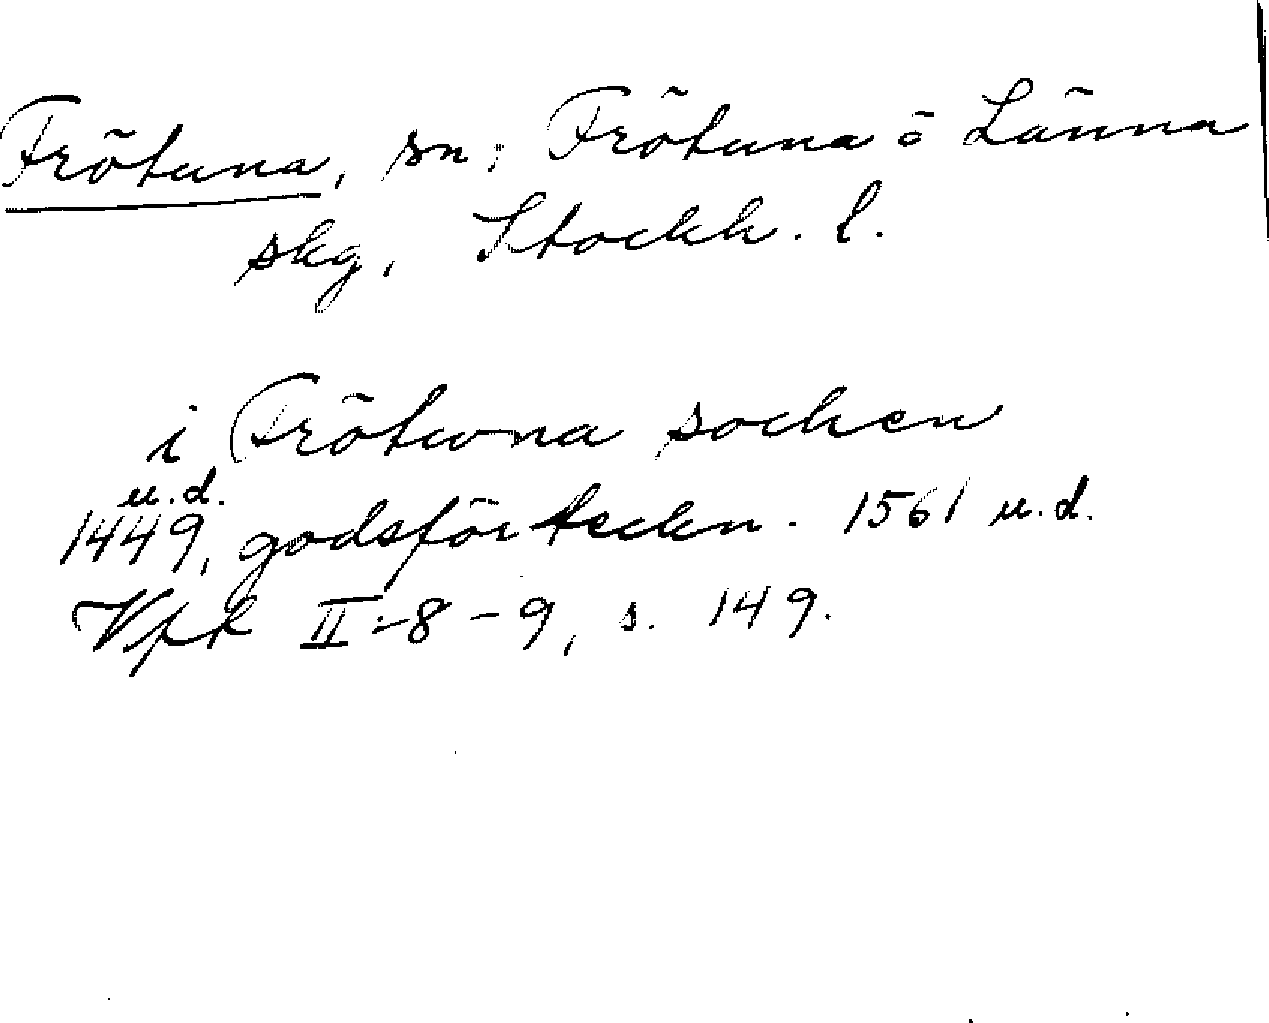 Frötuna, sn, Frötuna o Länna
skg, Stockh. l.
i Frötwna socken
u.d.
1449, godsförteckn. 1561 u.d.
Vpk II:8-9, s. 149.